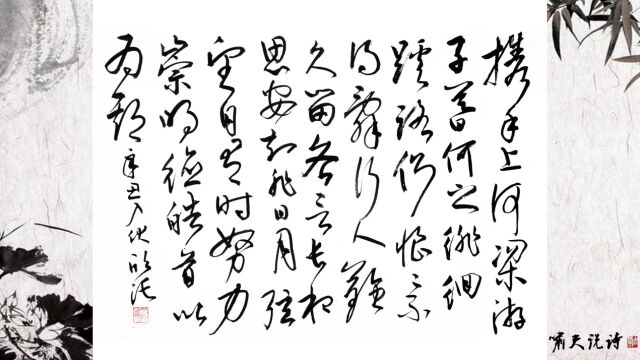 携手上河梁游
子暮何之徘徊
蹊路侧悢悢不
得辞行人難
久留各言长相
思安知非日月弦
望自有时努力
崇明德皓首以
为期 辛丑入伏
嘯夫说诗